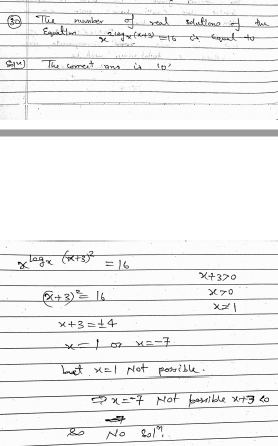 30 The number of real solutions of the
Equation x^2log_x(x+3) = 16 is equal to
Sol^n The correct ans is '0'
x^log_x (x+3)^2 = 16
x+3>0
(x+3)^2 = 16
x>0
x≠1
x+3 = ±4
x = 1 or x = -7
but x=1 Not possible.
⇒ x=-7 Not possible x+3<0
so No Sol^n.